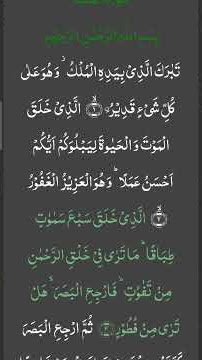 بِسْمِ اللّٰهِ الرَّحْمٰنِ الرَّحِيْمِ
تَبٰرَكَ الَّذِىْ بِيَدِهِ الْمُلْكُ ؗ وَهُوَ عَلٰى
كُلِّ شَىْءٍ قَدِيْرُ ۙ﴿۱﴾ الَّذِىْ خَلَقَ
الْمَوْتَ وَالْحَيٰوةَ لِيَبْلُوَكُمْ اَيُّكُمْ
اَحْسَنُ عَمَلًا ؕ وَهُوَ الْعَزِيْزُ الْغَفُوْرُ
﴿۲﴾ الَّذِىْ خَلَقَ سَبْعَ سَمٰوٰتٍ
طِبَاقًا ؕ مَا تَرٰى فِىْ خَلْقِ الرَّحْمٰنِ
مِنْ تَفٰوُتٍ ؕ فَارْجِعِ الْبَصَرَ ۙ هَلْ
تَرٰى مِنْ فُطُوْرٍ ﴿۳﴾ ثُمَّ ارْجِعِ الْبَصَرَ